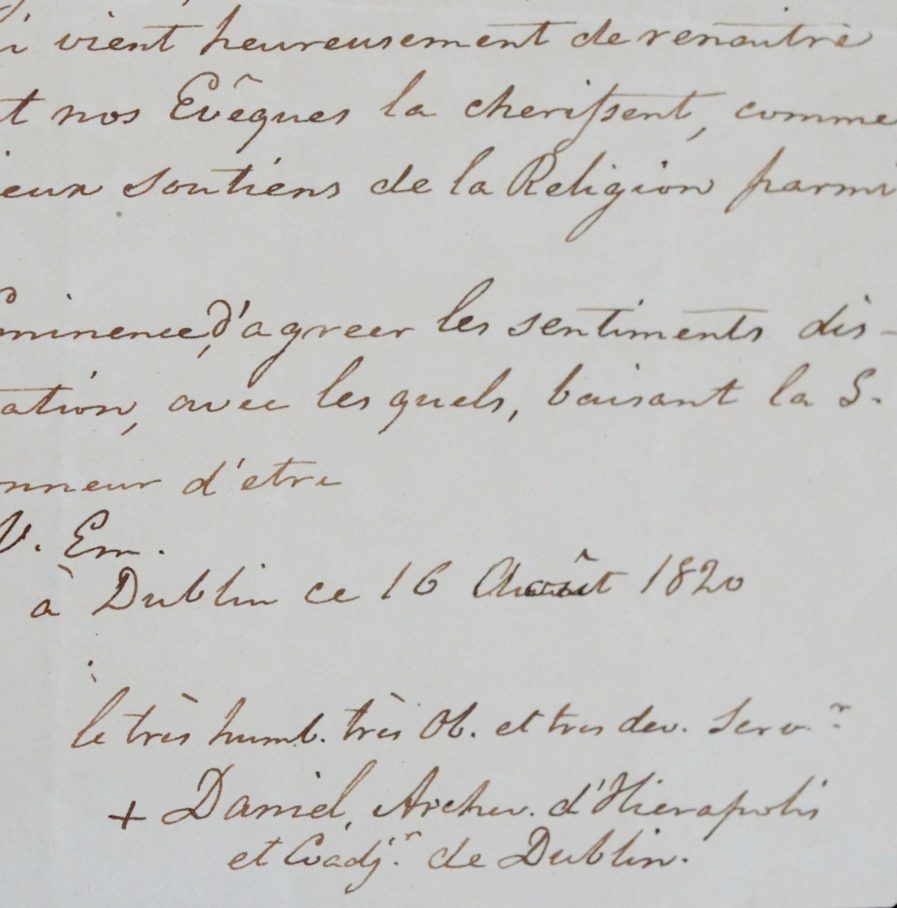 i vient heureusement de renaitre
t nos Evêques la cherissent, comme
ieux soutiens de la Religion parmi
minence, d'agreer les sentiments dis-
ation, avec les quels, baisant la S.
nneur d'etre
V. Em.
à Dublin ce 16 Août 1820
le très humb. très Ob. et tres dev. Serv.r
+ Daniel, Archev. d'Hierapolis
et Coadj.r de Dublin.